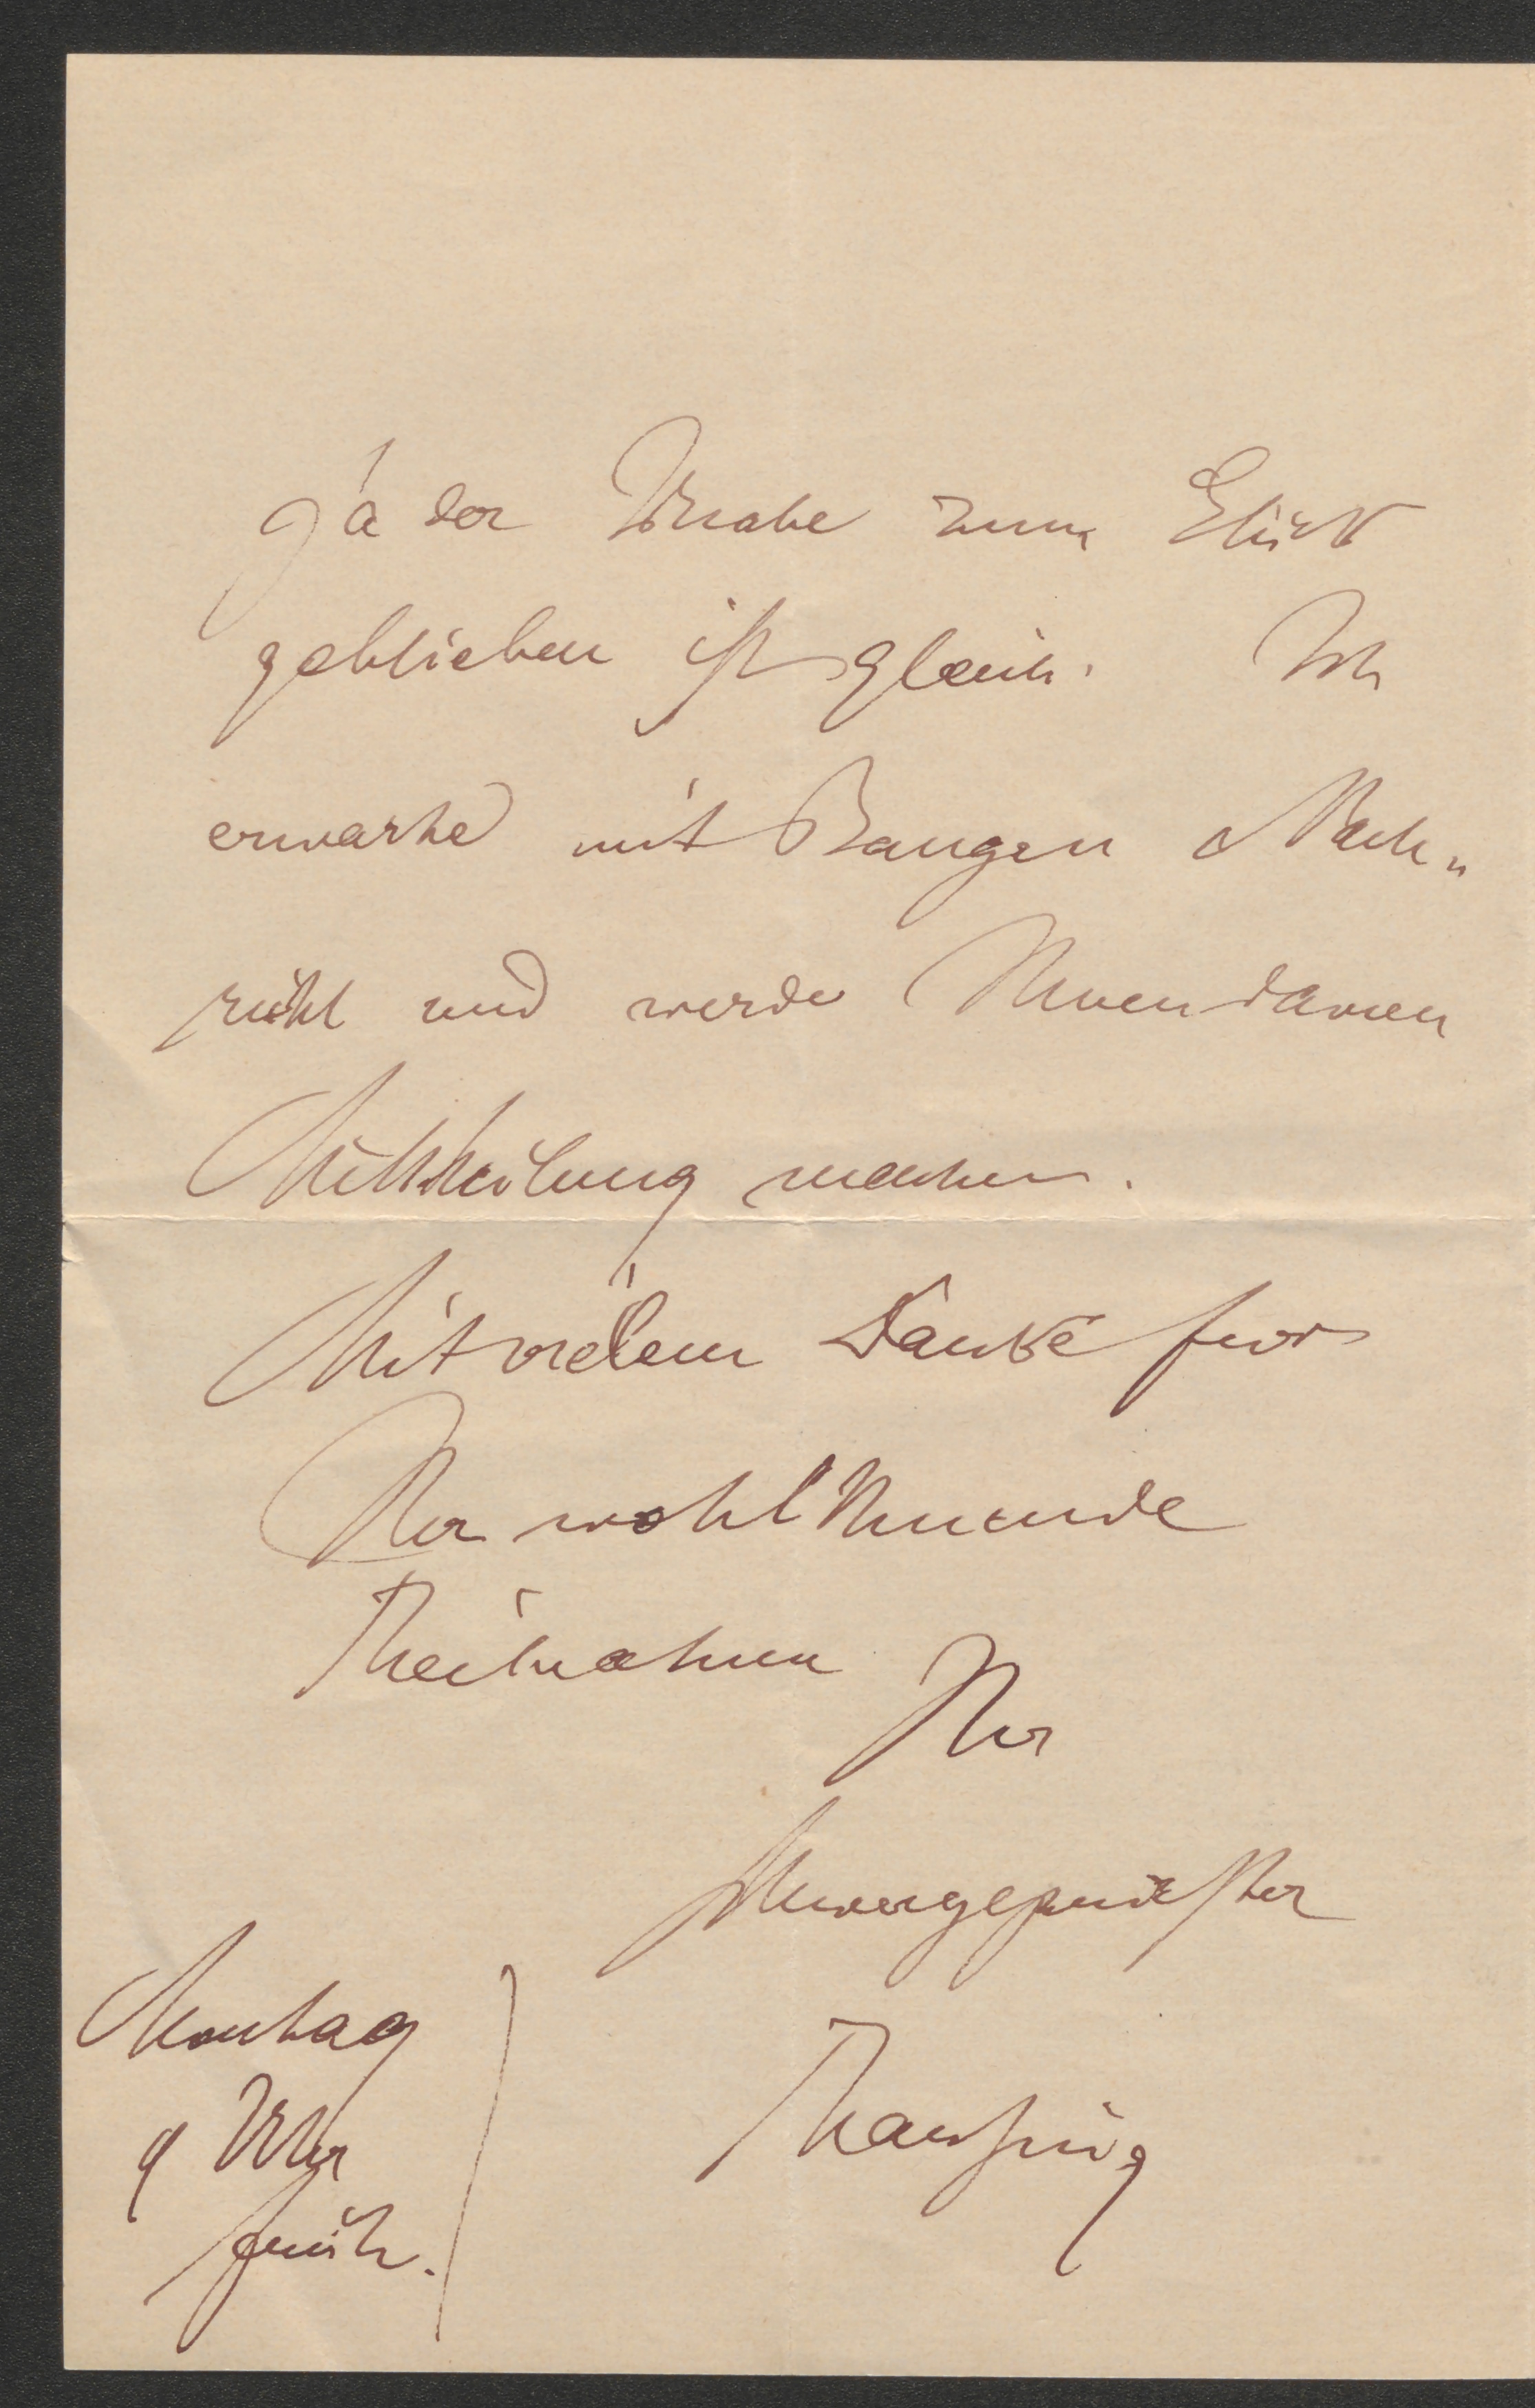 ja der zum Glück
geblieben ist gleich. Ich
erwarte mit Bangen Nach„
richt und werde Ihnen davon
Mittheilung machen.
Mit vielem Danke für
Ihre wohlthuende
Theilnahme Ihr
schwergeprüfter
Thausing
Montag
9 Uhr
früh.